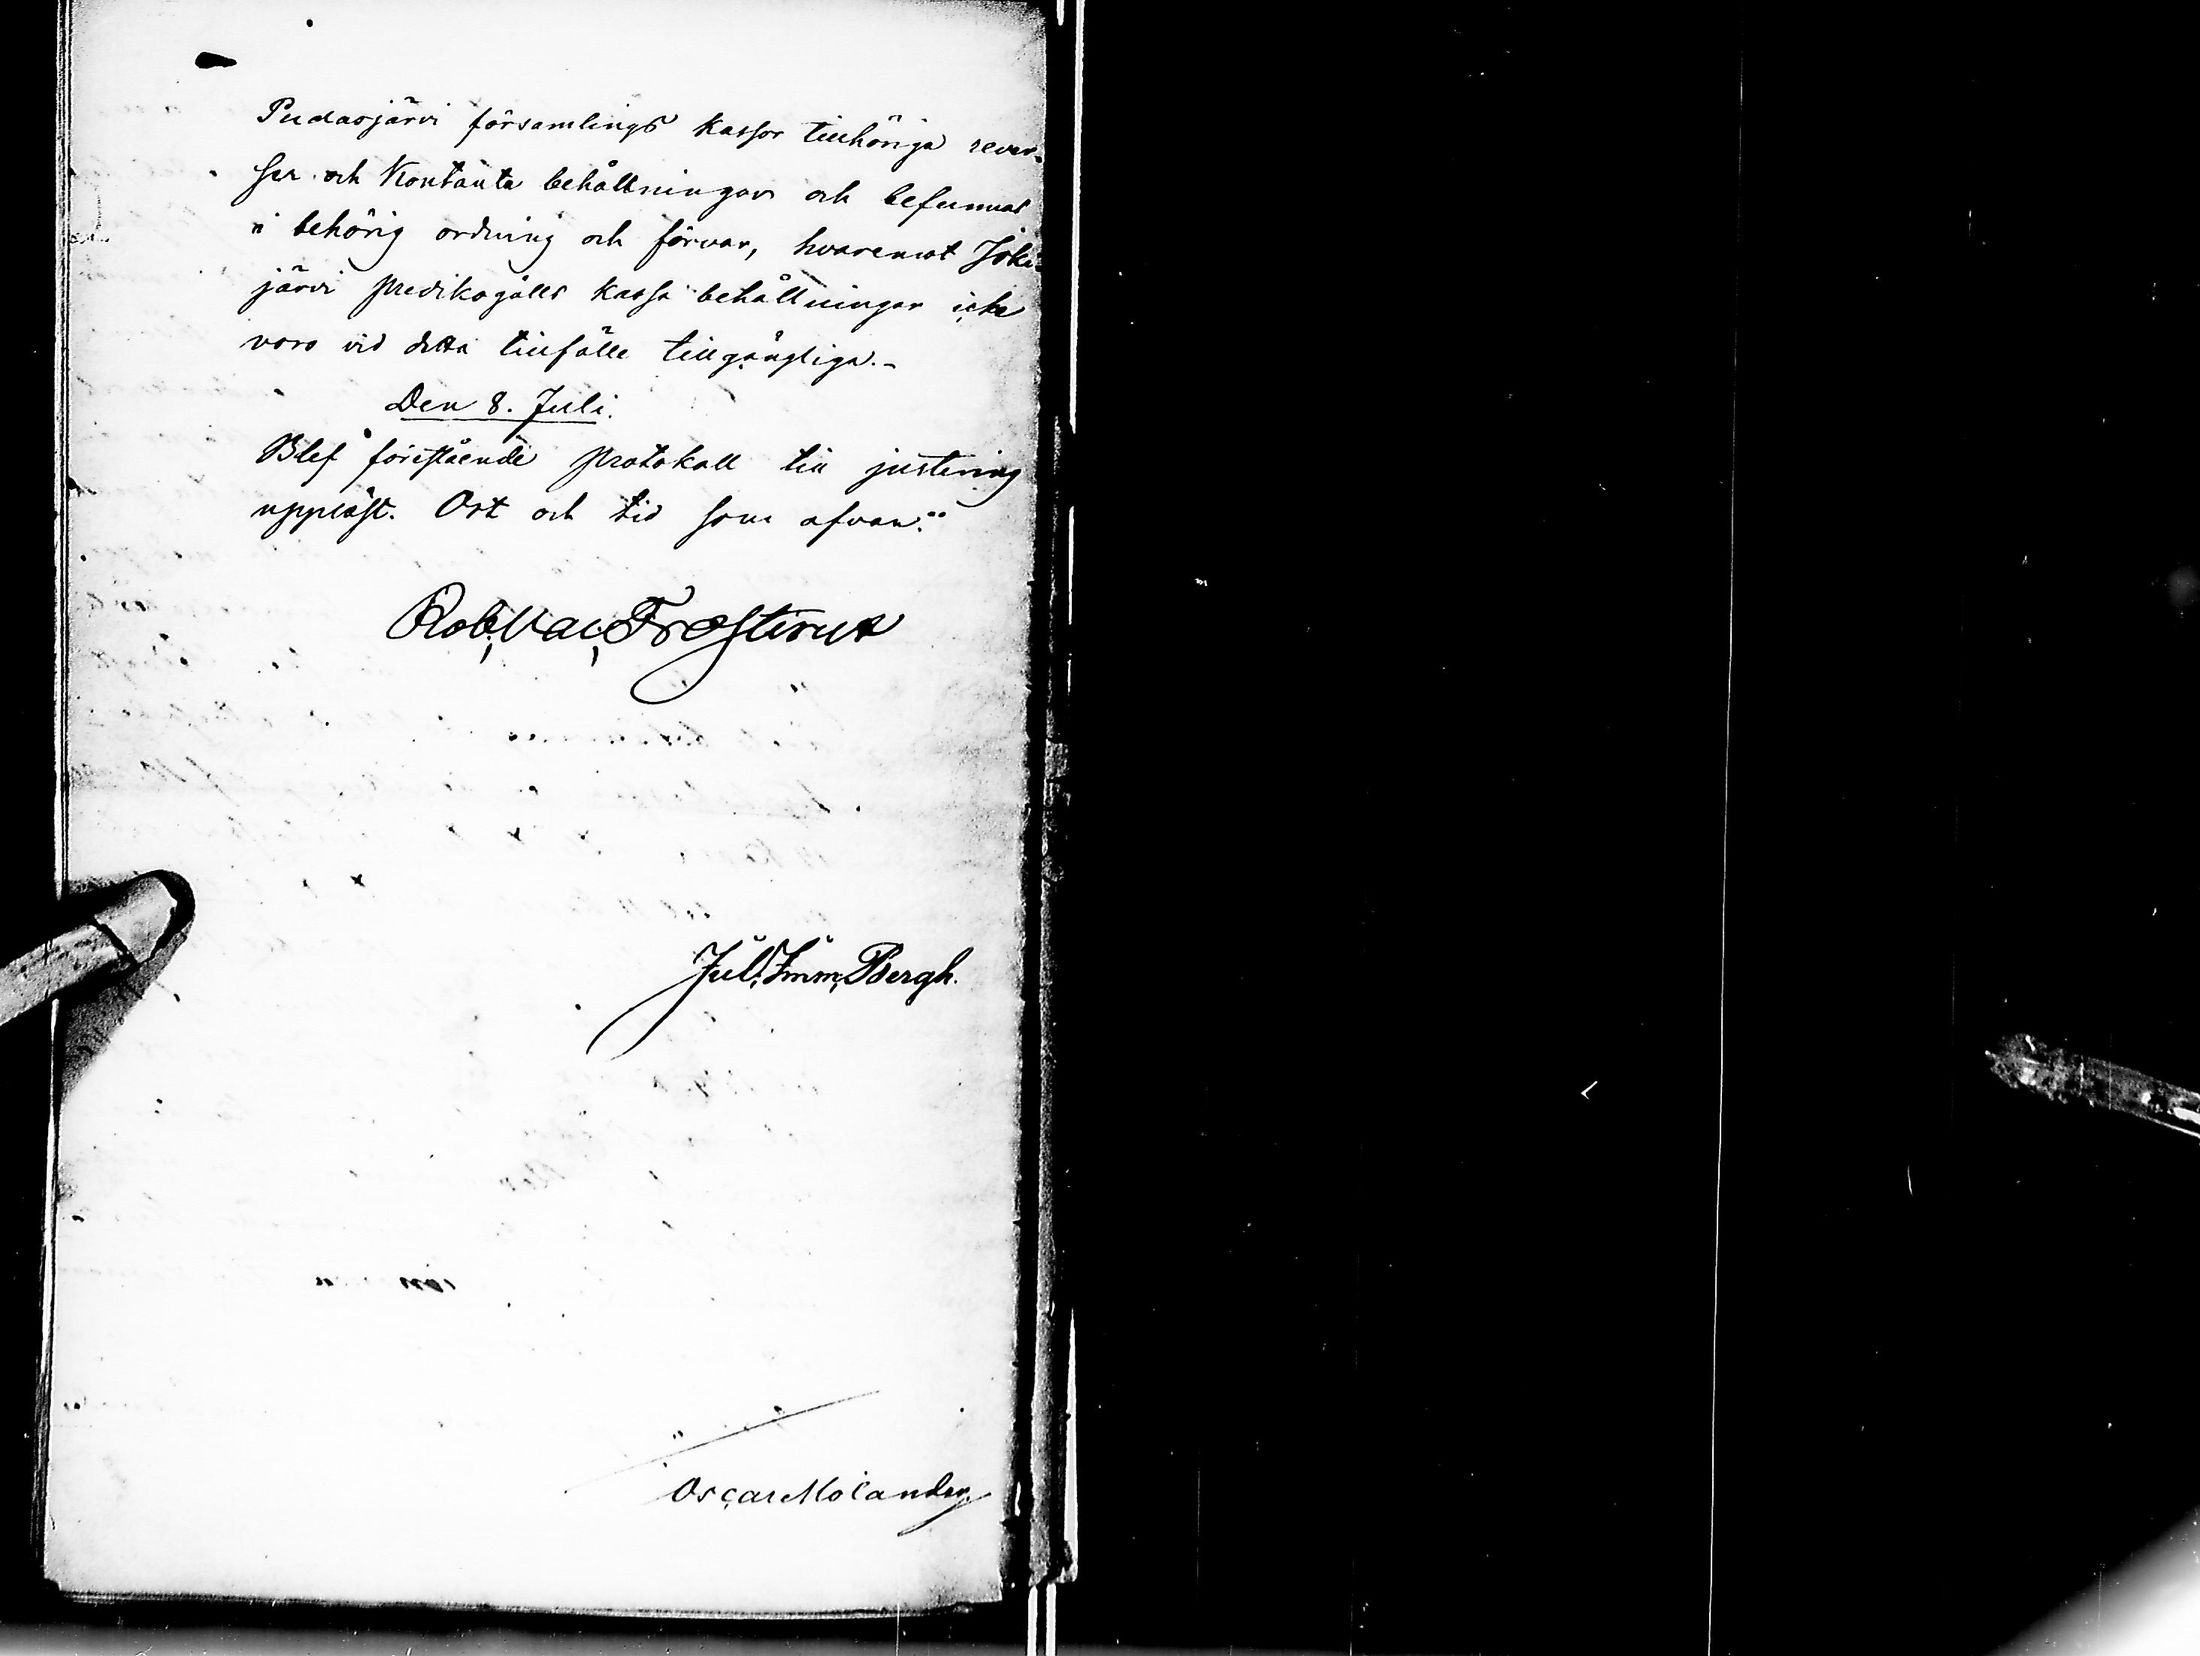 Pudasjärvi församlings kassor tillhöriga rever-
ser och Kontanta behållningar och befunnos
i behörig ordning och förvar, hvaremot Joki-
järvi predikogälls kassa behållningar icke
voro vid detta tillfälle tillgängliga.-
Den 8. Juli.
Blef förestående protokoll till justering
uppläst. Ort och tid som ofvan.
Rob. Val. Frosterus
Jul. Imm. Bergh.
Oscar Molander.